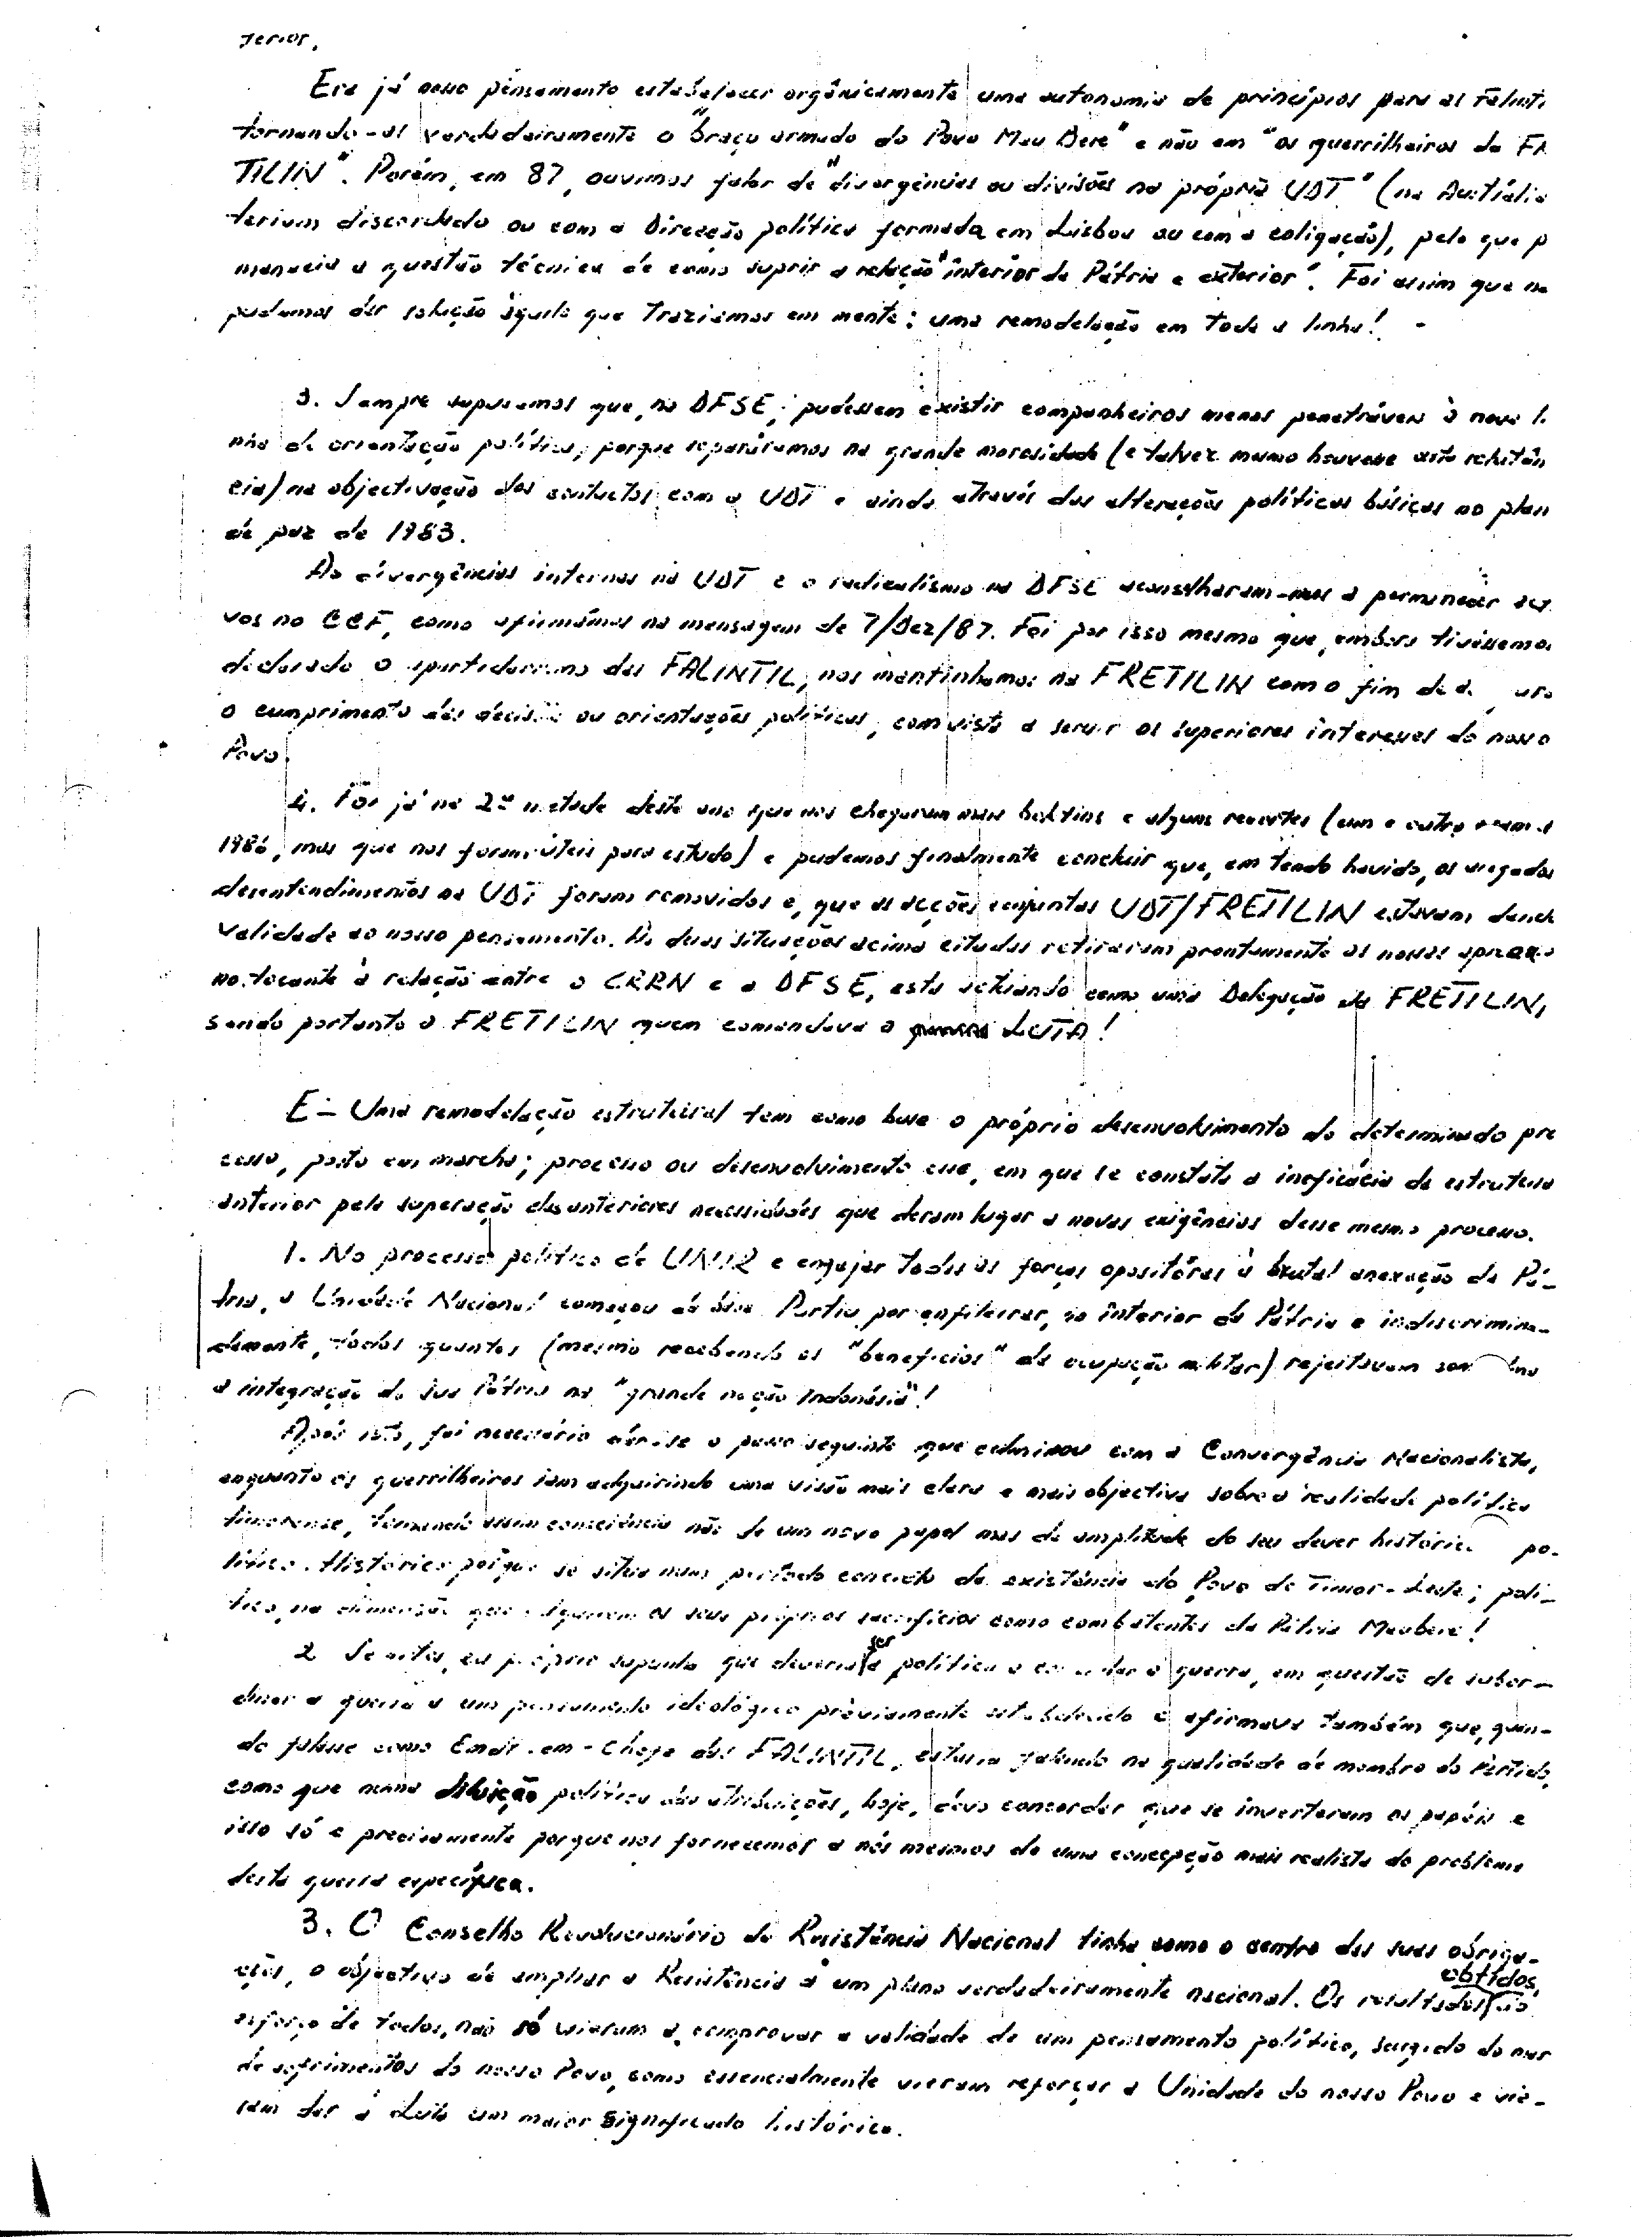 terior.
Era já nosso pensamento estabelecer orgânicamente uma autonomia de princípios para as Falinti
tornando-as verdadeiramente o "braço armado do Povo Mau Bere" e não em "os guerrilheiros da FR
TILIN". Porém, em 87, ouvimos falar de "divergências ou divisões na própria UDT" (na Austrália
teriam discordado ou com a Direcção política formada em Lisboa ou com a coligação), pelo que p
manecia a questão técnica de como suprir a relação "interior da Pátria e exterior". Foi assim que na
pudemos dar solução àquilo que trazíamos em mente: uma remodelação em toda a linha!
3. Sempre supusemos que, na DFSE, pudessem existir companheiros menos penetráveis à nova l.
nha de orientação política, porque reparáramos na grande morosidade (e talvez mesmo houvesse certa relutân
cia) na objectivação dos contactos com a UDT e ainda através das alterações políticas básicas no plan
de paz de 1983.
As divergências internas na UDT e o radicalismo na DFSE aconselharam-nos a permanecer
vos no CCF, como afirmámos na mensagem de 7/Dez/87. Foi por isso mesmo que, embora tivéssemos
declarado o apartidarismo das FALINTIL, nos mantínhamos na FRETILIN com o fim de
o cumprimento das decisões ou orientações políticas, com vista a servir os superiores interesses do nosso
Povo.
4. Foi já na 2ª metade deste ano que nos chegaram mais boletins e alguns recortes (um e outro
1986, mas que nos foram úteis para estudo) e pudemos finalmente concluir que, em tendo havido, os alegados
desentendimentos na UDT foram removidos e, que as acções conjuntas UDT/FRETILIN estavam dando
validade ao nosso pensamento. As duas situações acima citadas retiraram prontamente as nossas
no tocante à relação entre o CRRN e a DFSE, esta actuando como uma Delegação da FRETILIN,
sendo portanto a FRETILIN quem comandava a LUTA!
E - Uma remodelação estrutural tem como base o próprio desenvolvimento do determinado pro
cesso, posto em marcha; processo ou desenvolvimento esse, em que se constata a ineficácia da estrutura
anterior pela superação das anteriores necessidades que deram lugar a novas exigências desse mesmo processo.
1. No processo político de UNIR e engajar todas as forças opositoras à brutal anexação da Pá-
tria, a Unidade Nacional começou da Pátria por enfileirar, no interior da Pátria e indiscrimina-
damente, todos quantos (mesmo recebendo os "benefícios" da ocupação militar) rejeitavam
a integração da sua Pátria na "grande nação Indonésia"!
Após isto, foi necessário dar-se o passo seguinte que culminou com a Convergência Nacionalista,
enquanto os guerrilheiros iam adquirindo uma visão mais clara e mais objectiva sobre a realidade política
timorense, tomando assim consciência não de um novo papel mas da amplitude do seu dever histórico po-
lítico. Histórico porque se situa num período concreto da existência do Povo de Timor-Leste; polí-
tico, na dimensão que os seus próprios sacrifícios como combatentes da Pátria Maubere!
2. Se antes, eu próprio supunha que deveria ser a política a comandar a guerra, em questão de subor-
dinar a guerra a um pensamento ideológico préviamente estabelecido e afirmava também que, quan-
do falasse como Cmdt.-em-Chefe das FALINTIL, estaria falando na qualidade de membro do Partido,
como que numa diluição política das atribuições, hoje, devo concordar que se inverteram os papéis e
isso só e precisamente porque nos fornecemos a nós mesmos de uma concepção mais realista do problema
desta guerra específica.
3. O Conselho Revolucionário da Resistência Nacional tinha como o centro das suas obriga-
ções, o objectivo de ampliar a Resistência a um plano verdadeiramente nacional. Os resultados obtidos,
esforço de todos, não só vieram a comprovar a validade de um pensamento político, surgido do mar
de sofrimentos do nosso Povo, como essencialmente vieram reforçar a Unidade do nosso Povo e vie-
ram dar à Luta um maior significado histórico.